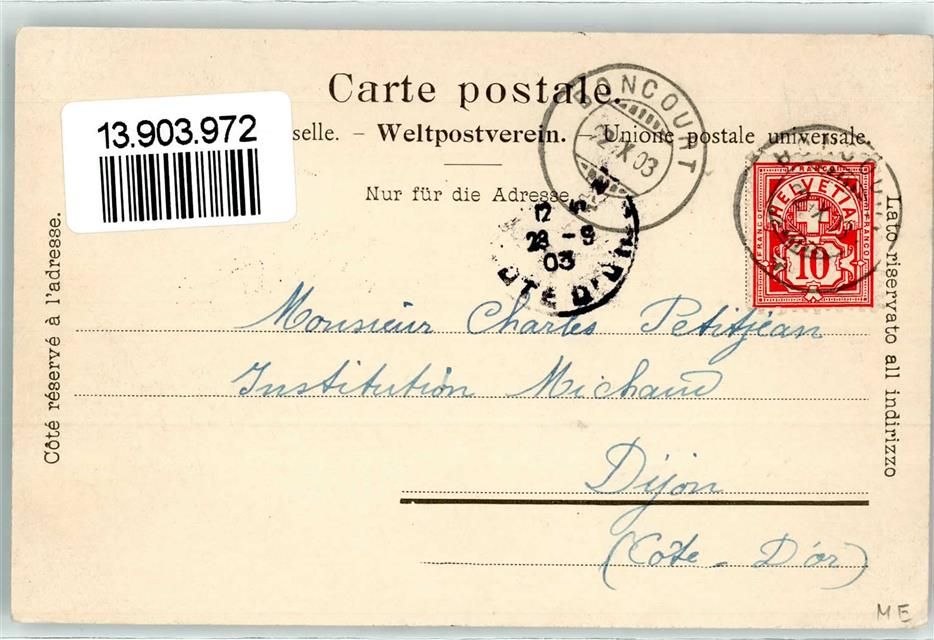 Carte postale.
13.903.972
selle. – Weltpostverein. – Unione postale universale.
Nur für die Adresse
BONCOURT
X 03
12
28 - 9
03
OTE D'O
HELVETIA
FRANCO
FRANCO
10
Côté réservé à l'adresse.
Lato riservato all indirizzo
Monsieur Charles Petitjean
Institution Michaud
Dijon
(Côte - D'or)
ME